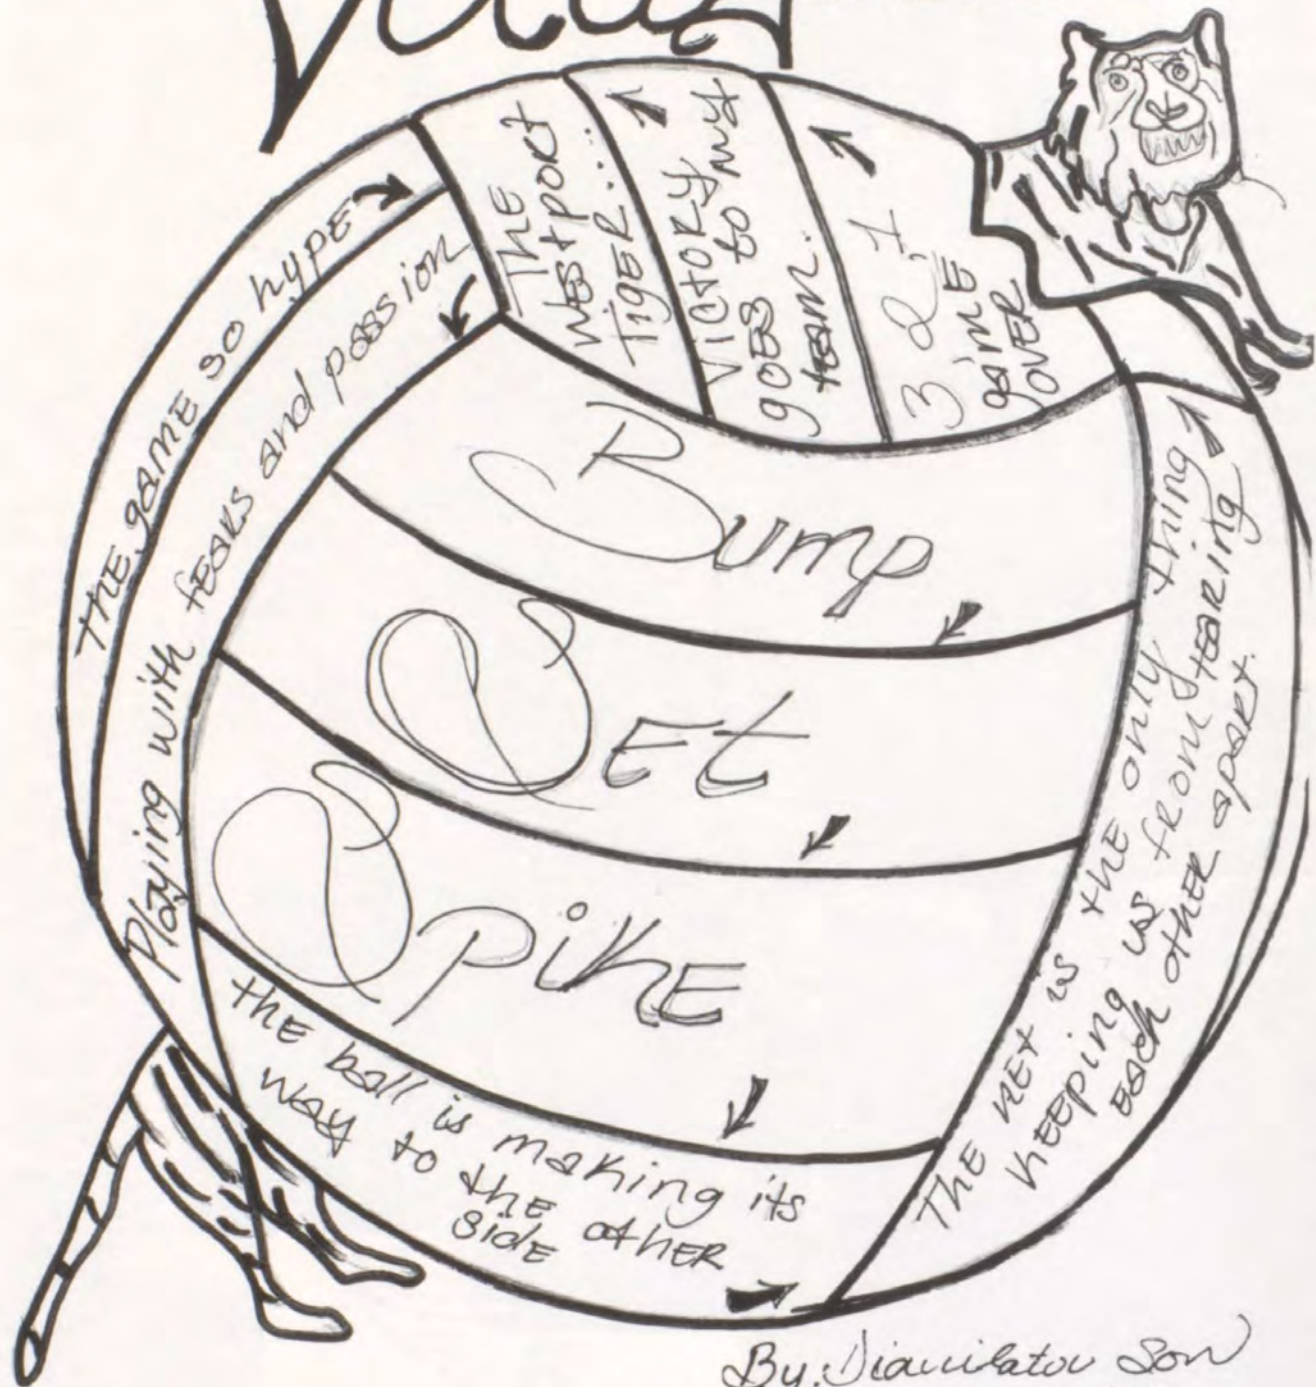 The game so hype
Playing with fears and passion
Bump
Set
Spike
the ball is making its
way to the other
side
The net is the only thing
keeping us from tearing
each other apart.
3 2 1
game
over
Victory
goes to my
team.
The
Westport
Tiger...
By: Sow